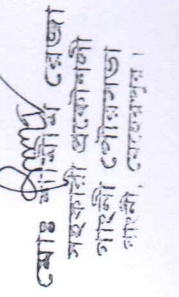 মোঃ শামীম রেজা
সহকারী প্রকৌশলী
গাংনী পৌরসভা
গাংনী, মেহেরপুর।